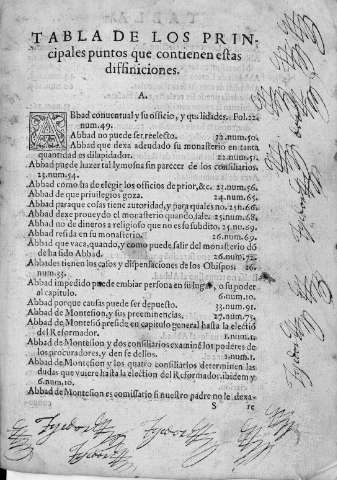 TABLA DE LOS PRIN-
cipales puntos que contienen estas
diffiniciones.
A.
ABbad conuentual y su officio, y qualidades. Fol.22.
num.49.
Abbad no puede ser reelecto. 22.num.50.
Abbad que dexa adeudado su monasterio en tanta
quantidad es dilapidador. 22.num.51.
Abbad puede hazer tal lymosna sin parecer de los consiliarios
23.num.54.
Abbad como ha de elegir los officios de prior,&c. 23.num.56.
Abbad de que priuilegios goza. 24.num.65.
Abbad para que cosas tiene autoridad, y para quales no. 25.n.66.
Abbad dexe proueydo el monasterio quando sale. 25.num.68.
Abbad no de dineros a religioso que no es su subdito. 25.nu.69.
Abbad resida en su monasterio. 26.num.69.
Abbad que vaca, quando, y como puede salir del monasterio dõ
de ha sido Abbad. 26.num.72.
Abbades tienen los casos y dispensaciones de los Obispos. 26.
num.33.
Abbad impedido puede embiar persona en su lugar, o su poder
al capitulo. 6.num.10.
Abbad porque causas puede ser depuesto. 33.num.91.
Abbad de Montesion, y sus preeminencias. 27.num.75.
Abbad de Montesiõ preside en capitulo general hasta la electiõ
del Reformador. 1.num.1.
Abbad de Montesion y dos consiliarios examinẽ los poderes de
los procuradores, y den fe dellos. 2.num.1.
Abbad de Montesion y los quatro consiliarios determinen las
dudas que vuiere hasta la election del Reformador. ibidem y
6.num.10.
Abbad de Montesion es comissario si nuestro padre no le dexa-
S re